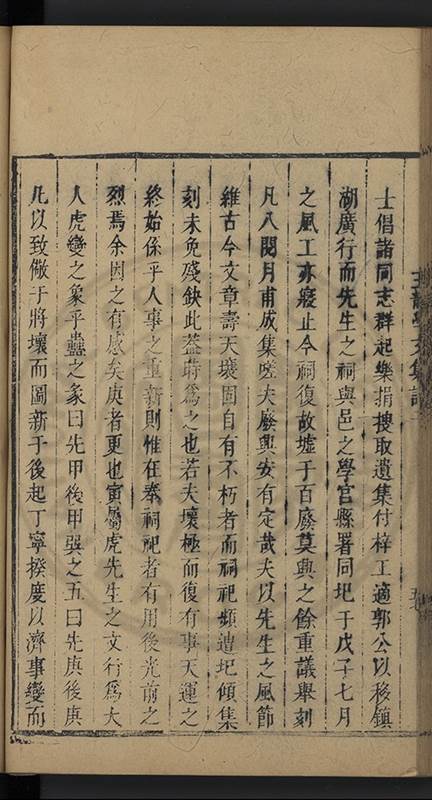 士倡諸同志群起樂捐搜取遺集付梓工適郭公以移鎮
湖廣行而先生之祠與邑之學官縣署同圮于戊子七月
之風工亦寢止今祠復故墟于百廢莫興之餘重議舉刻
凡八閱月甫成集嗟夫廢興安有定哉夫以先生之風節
維古今文章壽天壤固自有不朽者而祠祀頻遭圮傾集
刻未免殘缺此葢時爲之也若夫壞極而復有事天運之
終始係乎人事之重新則惟在奉祠祀者有用後光前之
烈焉余因之有感矣庚者更也寅屬虎先生之文行爲大
人虎變之象乎蠱之彖曰先甲後甲巽之五曰先庚後庚
凡以致儆于將壞而圖新于後起丁寧揆度以濟事變而